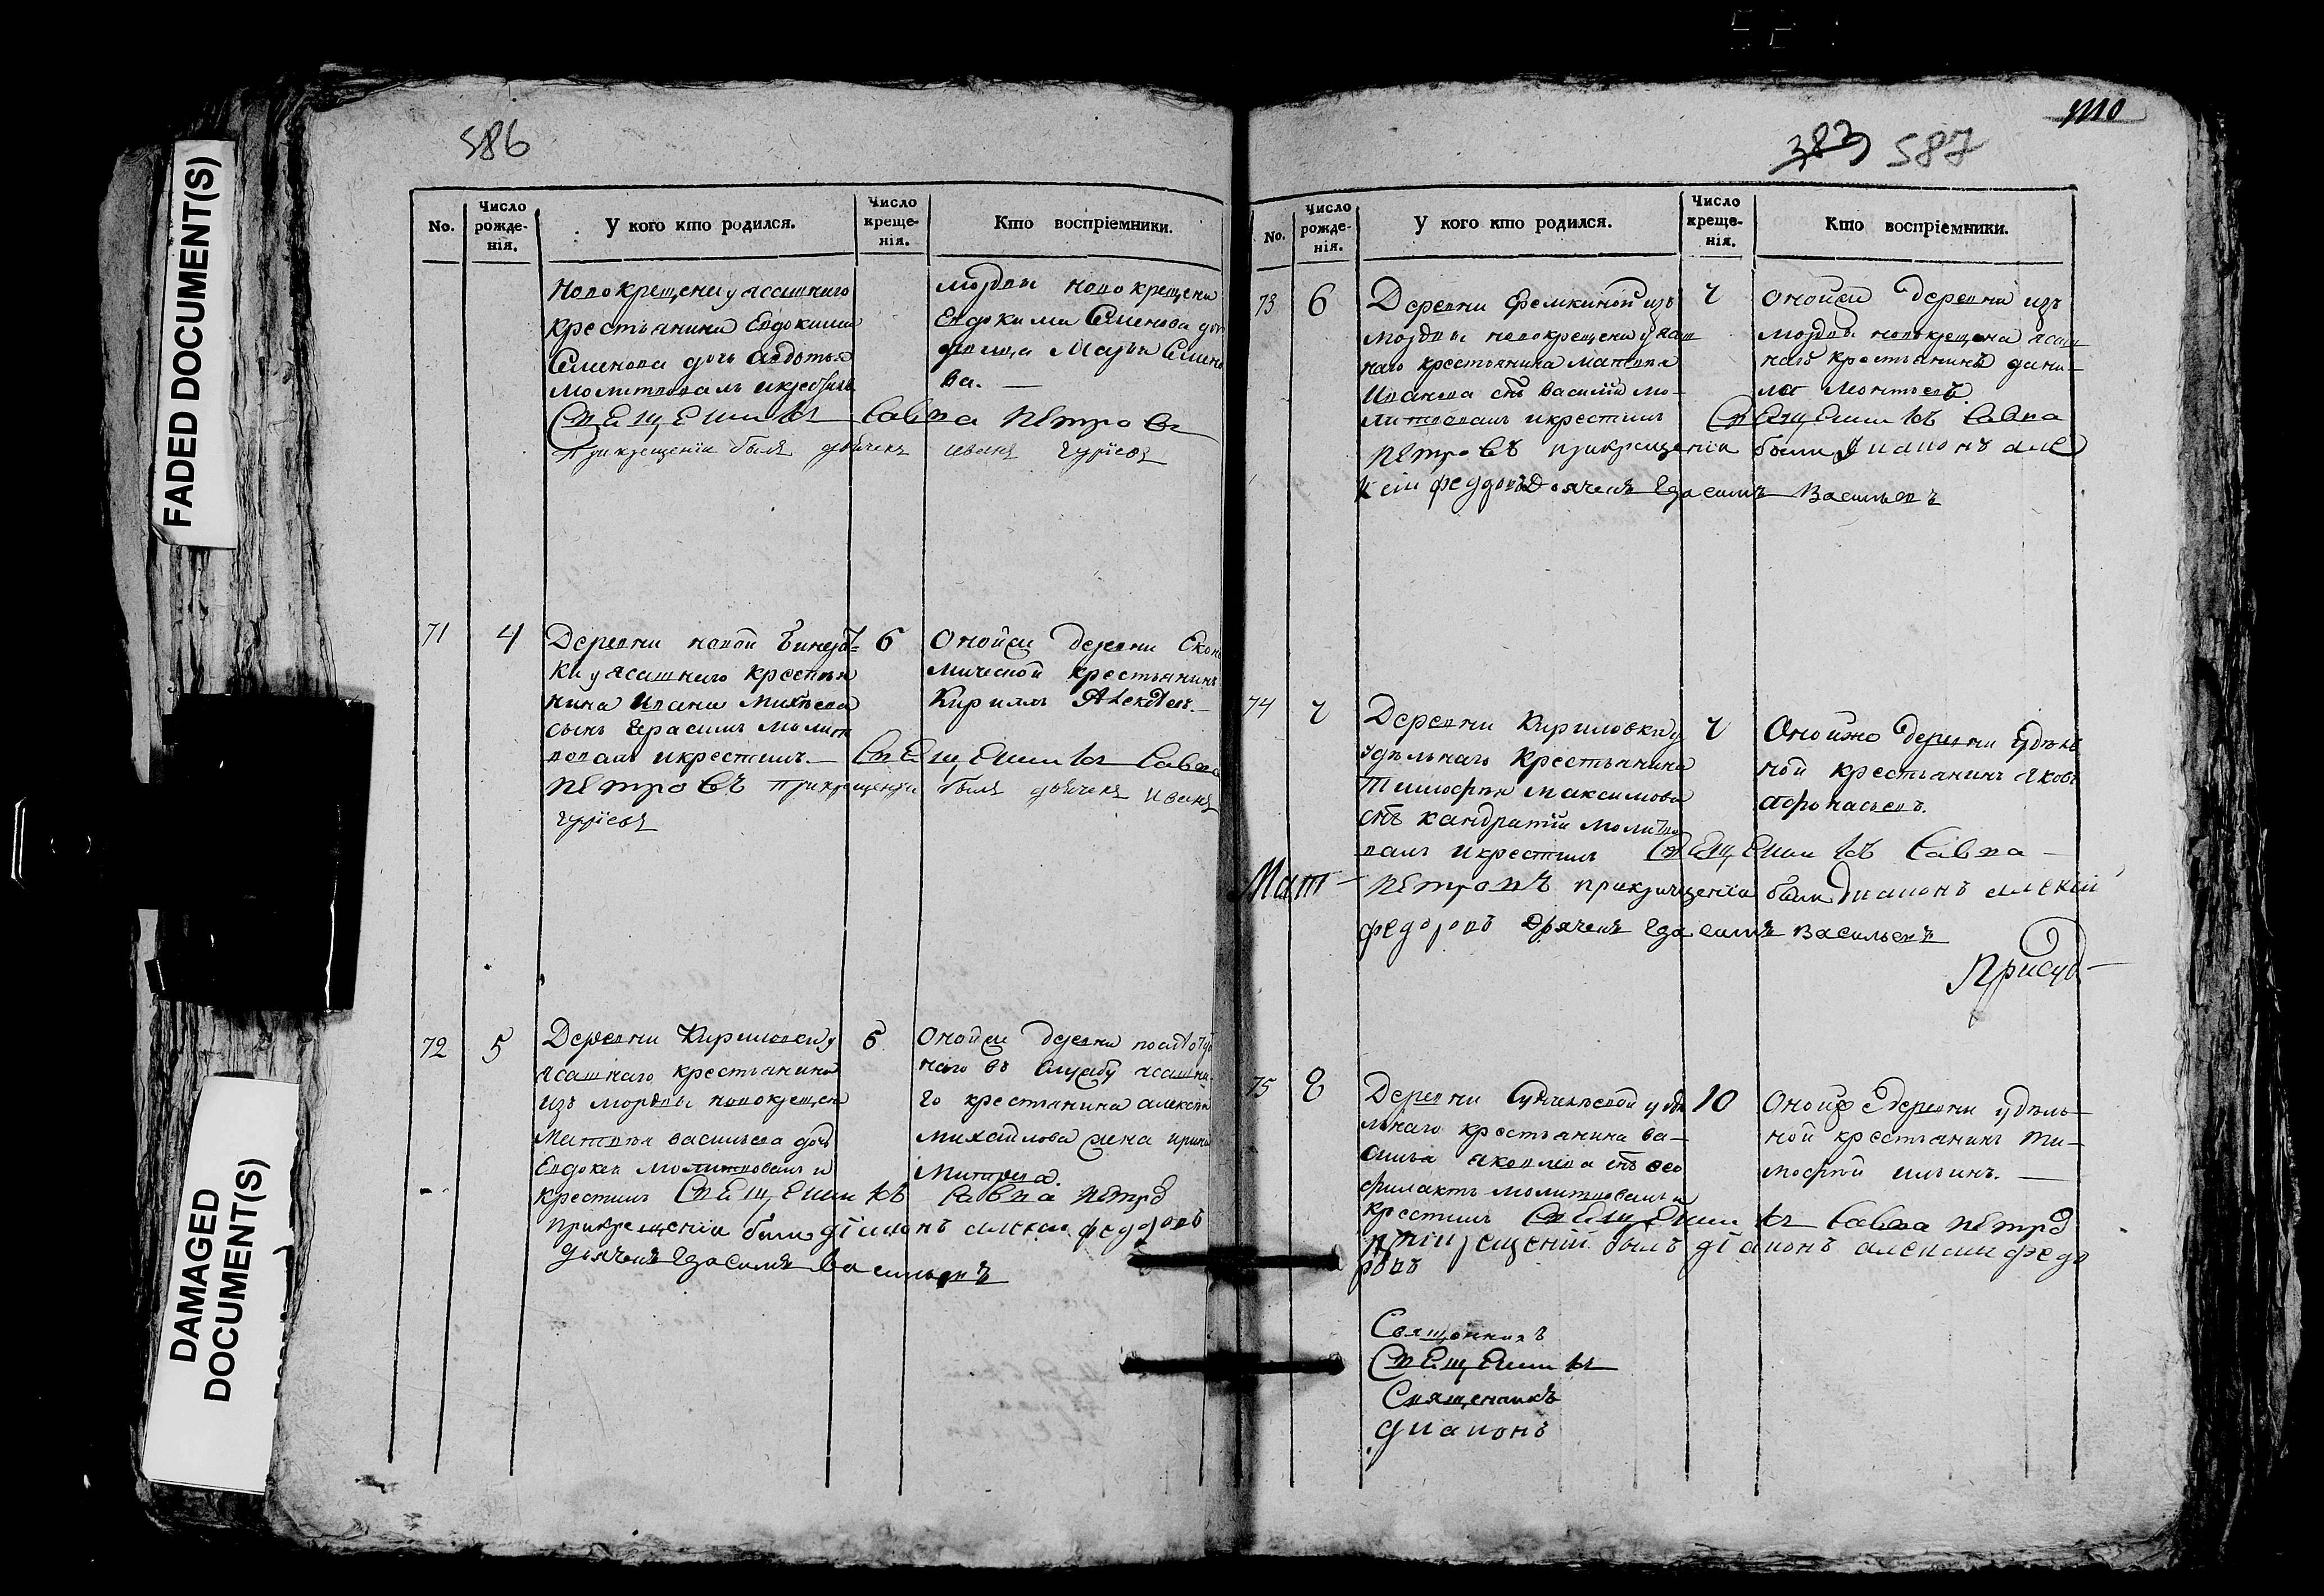 FADED DOCUMENT(S)
DAMAGED DOCUMENT(S)
586
No.
Число рожде-нія.
У кого кто родился.
Число креще-нія.
Кто воспріемники.
новокрещены у ясашнаго
крестьянина Евдокима
Семенова дочь Авдотья
молитвовалъ и крестилъ
Священникъ Савва Петровъ
При крещеніи былъ дьячекъ иванъ гурісвъ
мордвы новокрещена
Евдокима Семенова
Марья
ва. —
71
4
Деревни новой Бинарат-
ки у ясашнаго крестья
нина Ивана Михѣева
сынъ Герасимъ молит
вовалъ и крестилъ. — Священникъ Савва
Петровъ При крещеніи былъ дьячекъ иванъ
гурісвъ
6
Оной же деревни Екон
мической крестьянинъ
Кирилъ Алексѣевъ. —
72
5
Деревни Кириловки у
ясашнаго крестьянина
изъ мордвы новокрещен
Матвѣя васильева дочь
Евдокея молитвовалъ и
крестилъ Священникъ Савва Петро
при крещеніи были діаконъ алексей федоровъ
дьячекъ Герасимъ Васильевъ
6
Оной же деревни
наго въ службу ясашна
го крестьянина алексея
михайлова жена ирина
Матвѣева.
1110
383 587
No.
Число рожде-нія.
У кого кто родился.
Число креще-нія.
Кто воспріемники.
73
6
Деревни Фемкиной изъ
мордвы новокрещена у ясаш
наго крестьянина Матвея
Иванова снъ василій мо-
литвовалъ и крестилъ Священникъ Савва
Петровъ при крещеніи были діаконъ але
ксѣи феддовъ Дьячекъ Герасимъ Васильевъ
7
Оной же деревни изъ
мордвы новокрещена ясаш
наго крестьянинъ дани-
ла Леонтьевъ
74
7
Деревни Кириловки у
удѣльнаго крестьянина
Тимофея Максимова
снъ кандратій молитво
валъ и крестилъ Священникъ Савва —
Петровъ при крещеніи были Диаконъ алексій
федоровъ Дьячекъ Герасимъ Васильевъ
7
Оной же деревни удѣль
ной крестьянинъ яковъ
Афонасьевъ.
Мат —
Присуд —
75
8
Деревни
льнаго крестьянина ва-
силья яковлева снъ фео
филактъ молитвовалъ и
крестилъ Священникъ Савва Петро
при крещеніи былъ діаконъ алексии федо
ровъ
10
Оной же деревни удѣль-
ной крестьянинъ ти-
мофей ильинъ. —
Священникъ
Священникъ
Священникъ
диаконъ